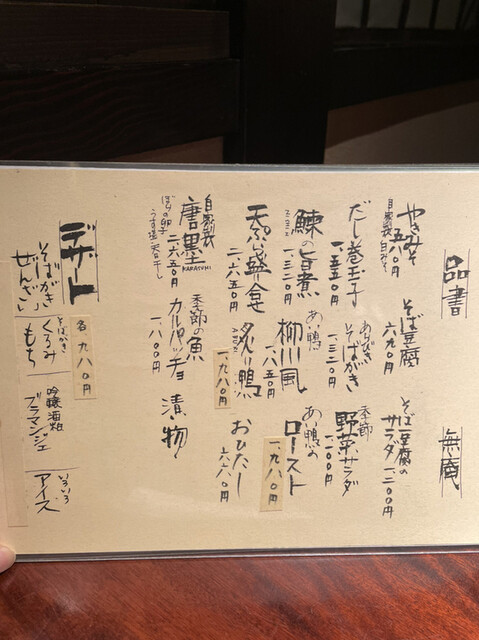 品書
無庵
やきみそ
自家製白みそ
五五〇円
そば豆腐
六九〇円
そば豆腐の
サラダ 一、二〇〇円
だし巻玉子
一、五五〇円
あらびき
そばがき
一、三二〇円
季節
野菜サラダ
一、一〇〇円
鰊の旨煮
NISIN
一、三二〇円
あい鴨
柳川風
一、六五〇円
あい鴨の
ロースト
一、九八〇円
天ぷら盛合せ
二、六五〇円
炙り鴨
ABURI
一、九八〇円
おひたし
六六〇円
自家製
唐墨
KARASUMI
ぼらの卵子
うす塩 天日干し
二、六五〇円
季節の魚
カルパッチョ
一、八〇〇円
漬物
デザート
各 九八〇円
そばがき
ぜんざい
そばがき
くるみ
もち
吟醸酒粕
ブラマンジェ
いろいろ
アイス